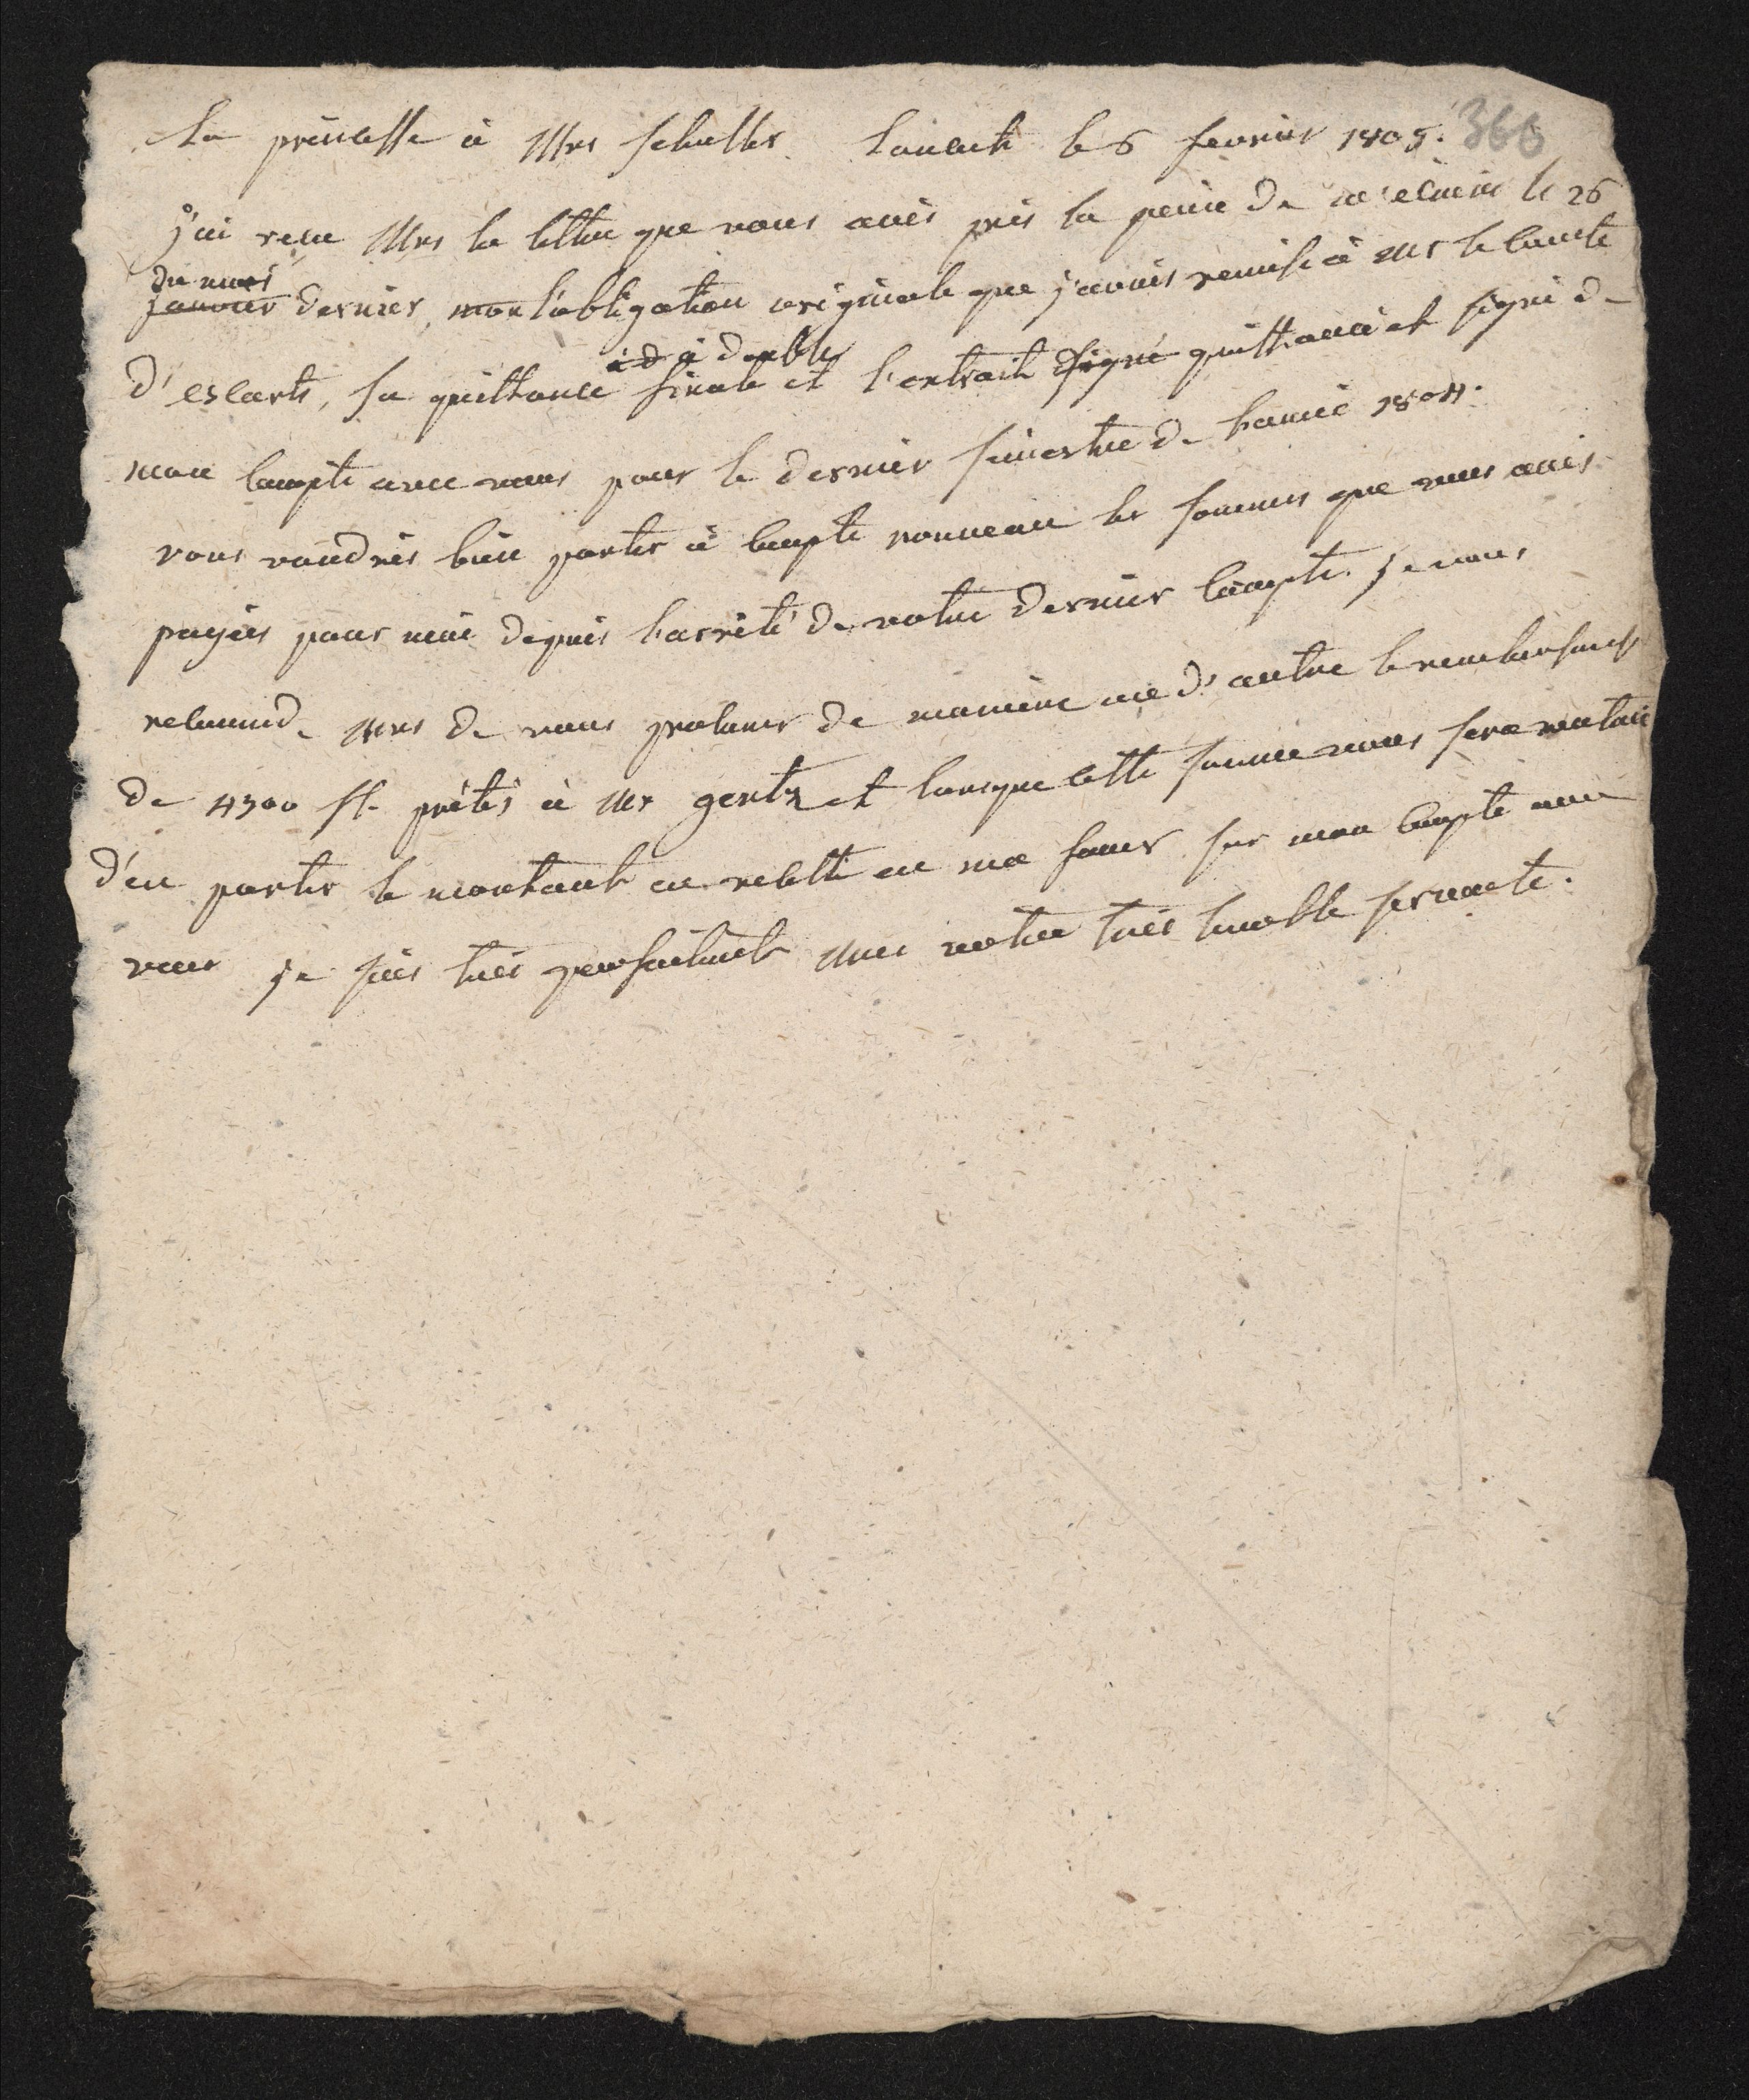 La princesse à Mrs schuller. Lancut le 6 fevrier 1805. 366
j'ai recu Mrs la lettre que vous avés pris la peine de m'ecrire le 26
du mois
janvier dernier, mon l'obligation originale que j'avais remise à Mr le comte
à d à double
d'escarts, sa quittance finale et l'extrait signé quittancé et signé de
mon compte avec vous pour le dernier semestre de l'année 1804.
vous voudrés bien porter à compte nouveau les sommes que vous avés
payées pour moi depuis l'arrêté de votre dernier compte. je vous
recommende Mrs de vous procurer de manière ou d'autre le remboursmt
de 4500 fl. prêtés à Mr gentz et lorsque cette somme vous sera rentrée
d'en porter le montant en recette en ma faveur sur mon compte avec
vous je suis très parfaitement Mrs votre très humble servante.